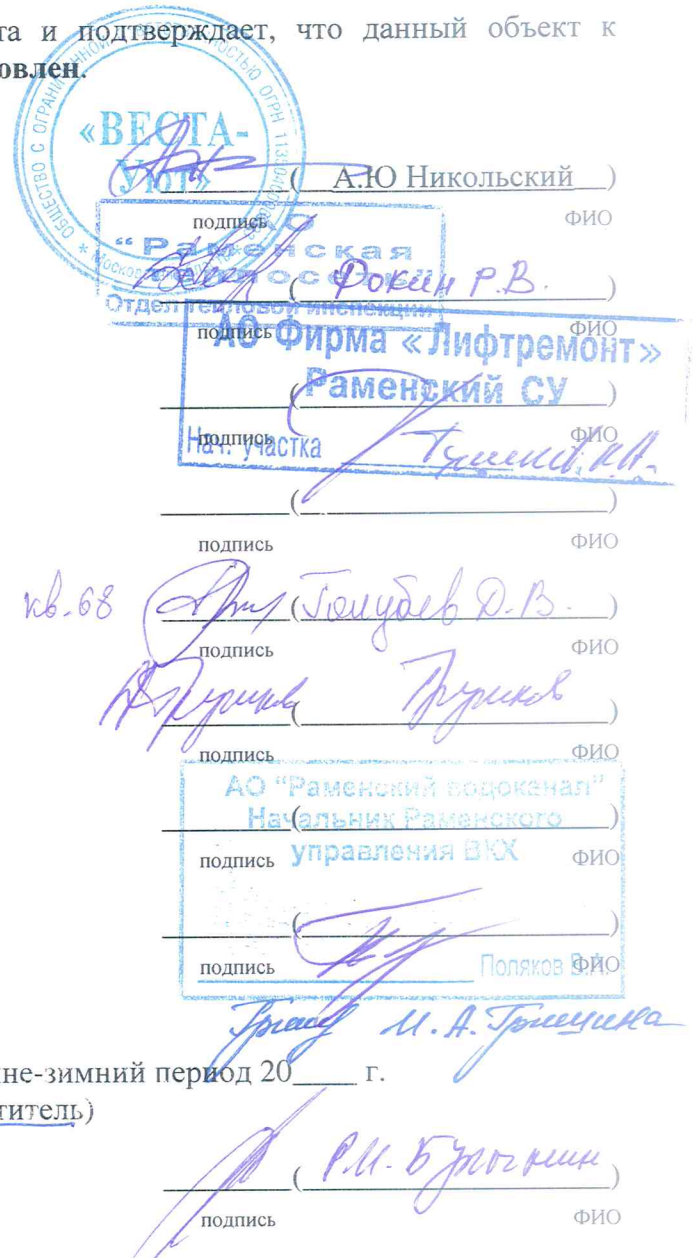 та и подтверждает, что данный объект к
овлен.
ОБЩЕСТВО С ОГРАНИЧЕННОЙ ОТВЕТСТВЕННОСТЬЮ ОГРН
«ВЕСТА-
Уют»
( А.Ю Никольский )
подпись ФИО
АО
"Раменская
теплосеть"
Отдел тепловой инспекции
( Фокин Р.В. )
подпись ФИО
АО Фирма «Лифтремонт»
Раменский СУ
( )
подпись ФИО
Нач. участка
( )
подпись ФИО
кв. 68 ( Голубев Д.В. )
подпись ФИО
( )
подпись ФИО
АО "Раменский водоканал"
Начальник Раменского
( )
управления ВКХ
подпись ФИО
( )
подпись Поляков В.А ФИО
И.А. Гришина
не-зимний период 20____ г.
титель)
( Р.И. )
подпись ФИО